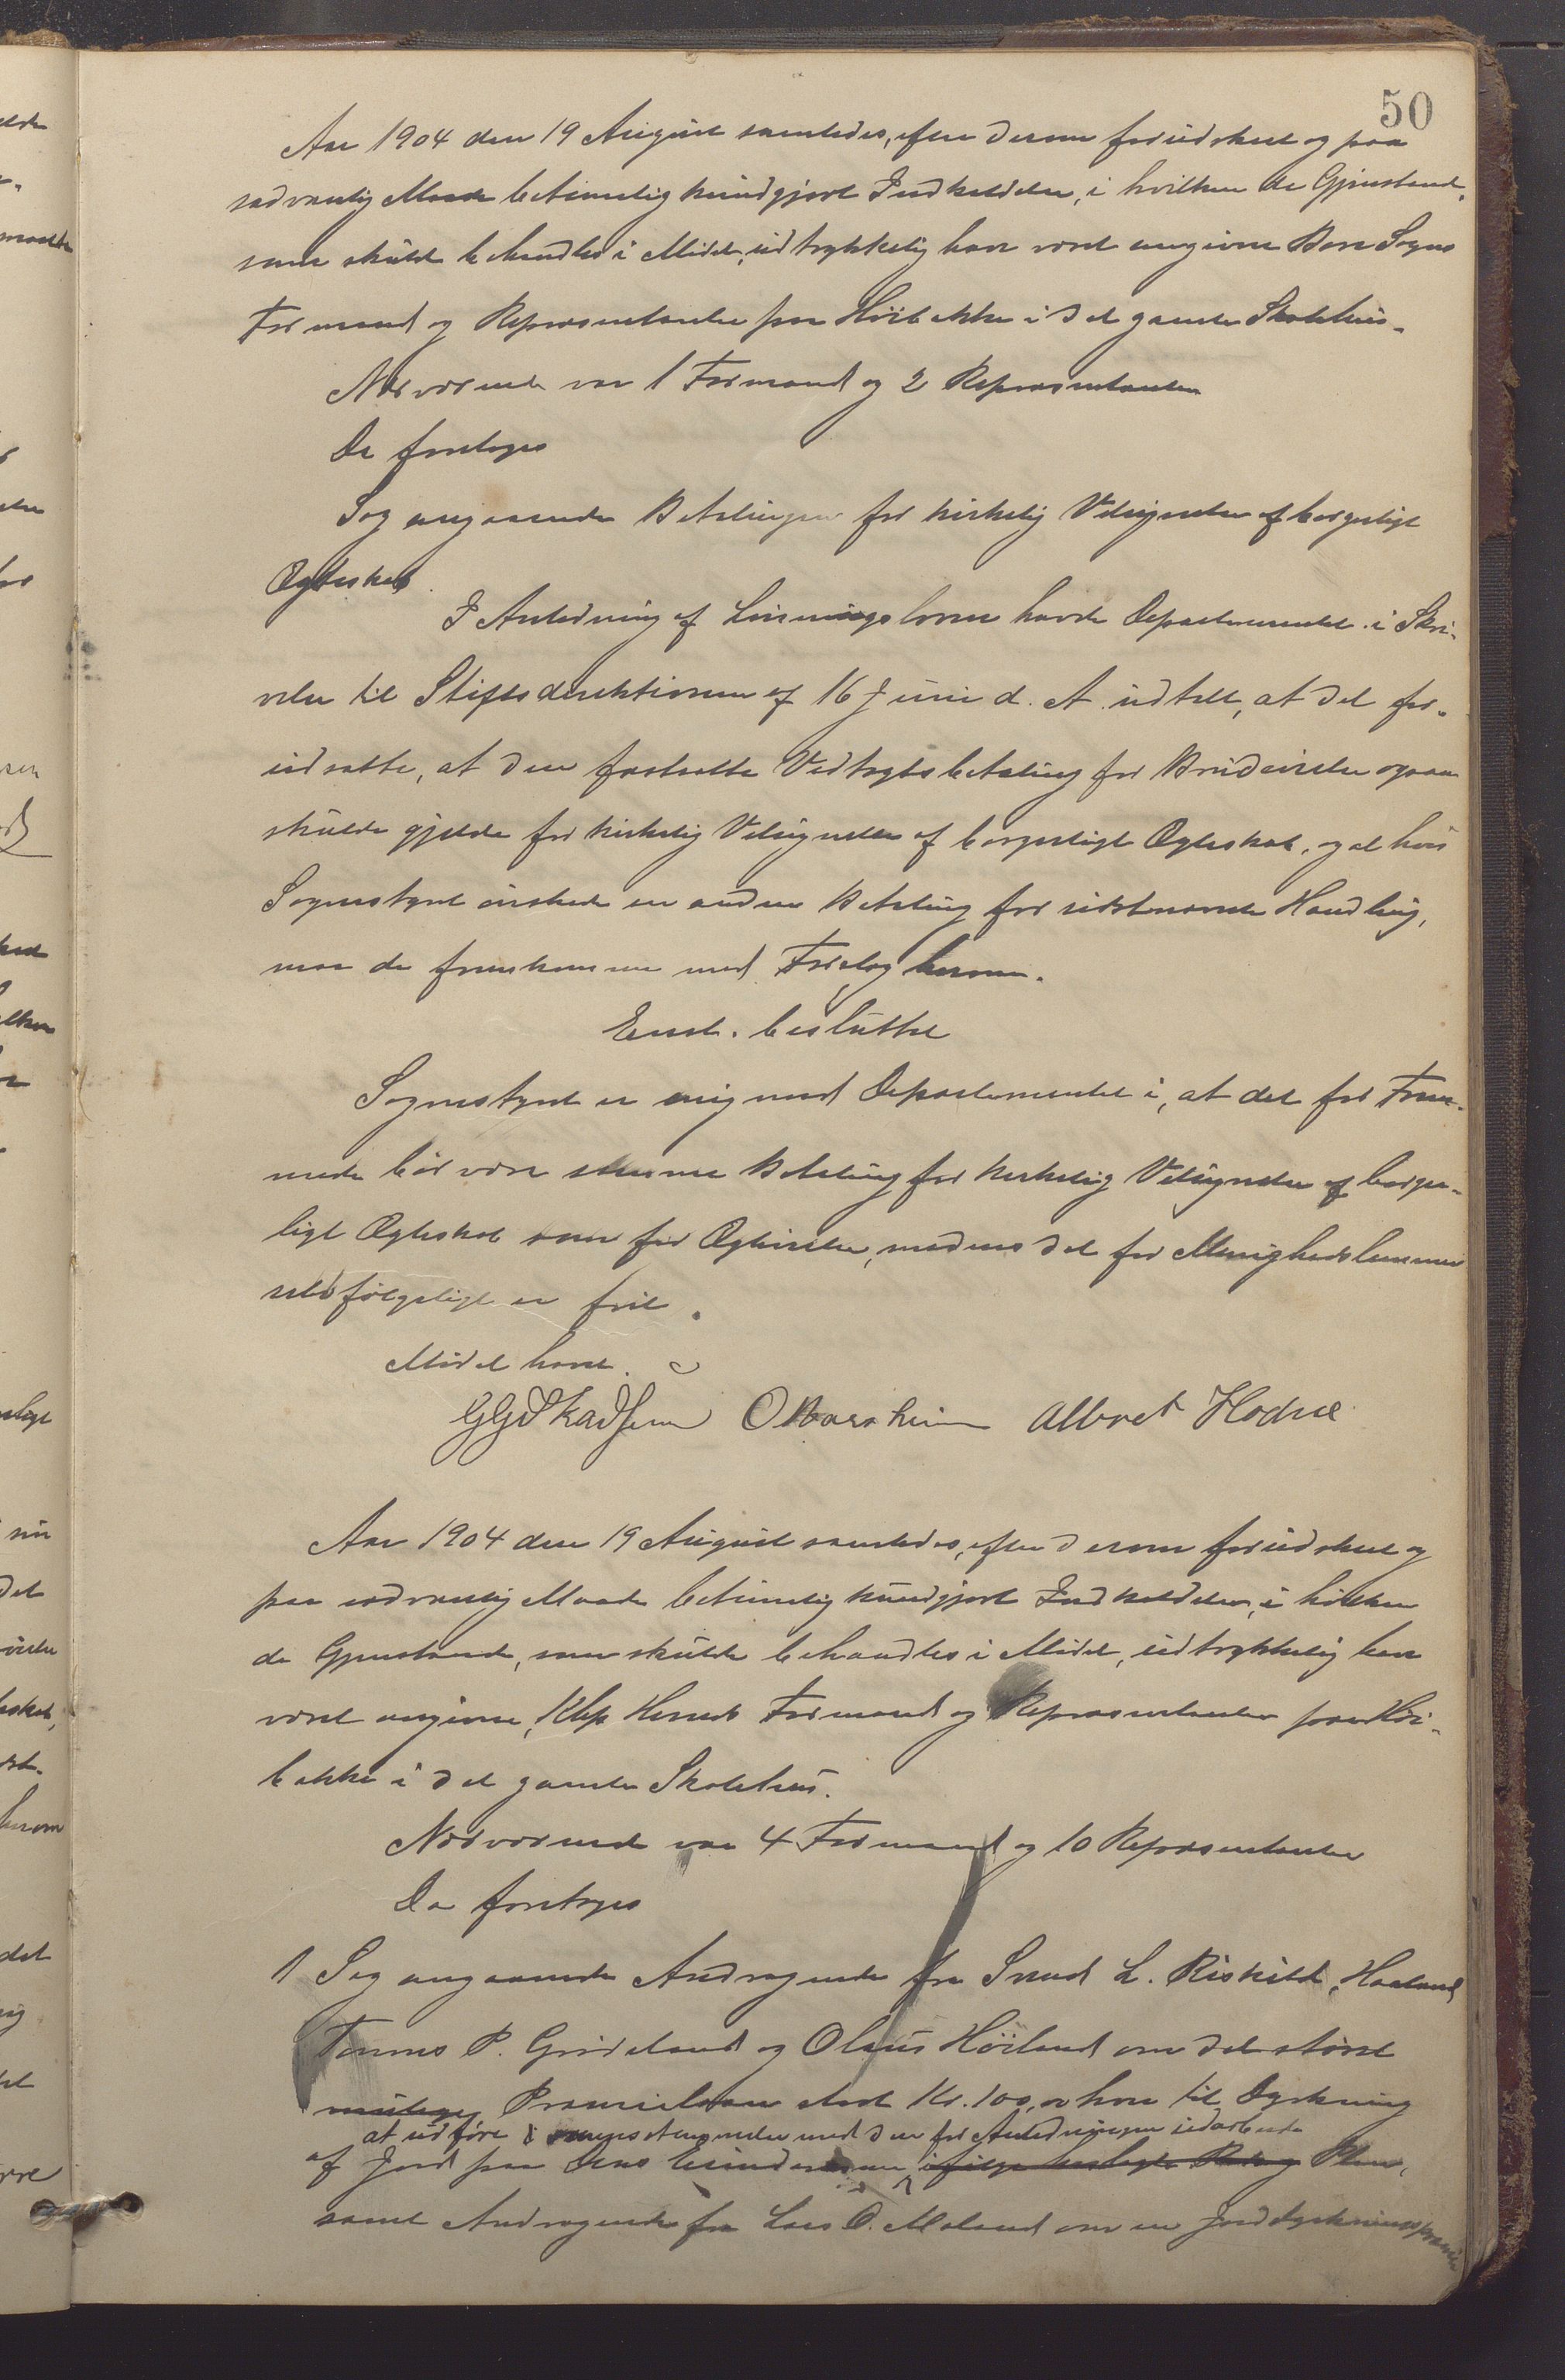 50
Aar 1904 den 19 August samledes, efter derom forudskeet og paa
sædvanlig Maade betimelig kundgjort Indkaldelse, i hvilken de Gjenstande,
som skulde behandles i Mødet, udtrykkelig have været angivne Bore Sogns
Formænd og Repræsentanter paa Høibakke i det gamle Skolehus.
Nærværende var 1 Formand og 2 Repræsentanter
Da foretoges
Sag angaaende Betalingen for kirkelig Velsignelse af borgerligt
Ægteskab.
I Anledning af Lønningsloven havde Departementet i Skri-
velse til Stiftsdirektionen af 16 Juni d. A. udtalt, at det for-
udsatte, at den fastsatte Vedtægtsbetaling for Brudevielse ogsaa
skulde gjælde for kirkelig Velsignelse af borgerligt Ægteskab, og at hvis
Sognestyret ønskede en anden Betaling for sidstnævnte Handling,
maa de fremkomme med Forslag herom.
Enst. besluttet
Sognestyret er enig med Departementet i, at det for Frem-
mede bør være samme Betaling for kirkelig Velsignelse af borger-
ligt Ægteskab som for Ægtevielse, medens det for Menighedslemmer
selvfølgeligt er frit.
Mødet hævet.
G G Skadsem O Braasheim Albret Hodne
Aar 1904 den 19 August samledes, efter derom forudskeet og
paa sædvanlig Maade betimelig kundgjort Indkaldelse, i hvilken
de Gjenstande, som skulde behandles i Mødet, udtrykkelig have
været angivne, Klep Herreds Formænd og Repræsentanter paa Høi-
bakke i det gamle Skolehus.
Nærværende var 4 Formænd og 10 Repræsentanter
Da foretoges
1 Sag angaaende Andragende fra Svend L. Riskild, Haaland
Tønnes P. Grødeland og Olaus Høiland om det størst
mulige Præmielaan stort Kr. 100,00 hver til Dyrkning
at udføre i overensstemmelse med den for Anledningen udarbeidede
af Jord paa deres Eiendomme ifølge Plan,
samt Andragende fra Lars O. Maland om en Jorddyrkningspræmie